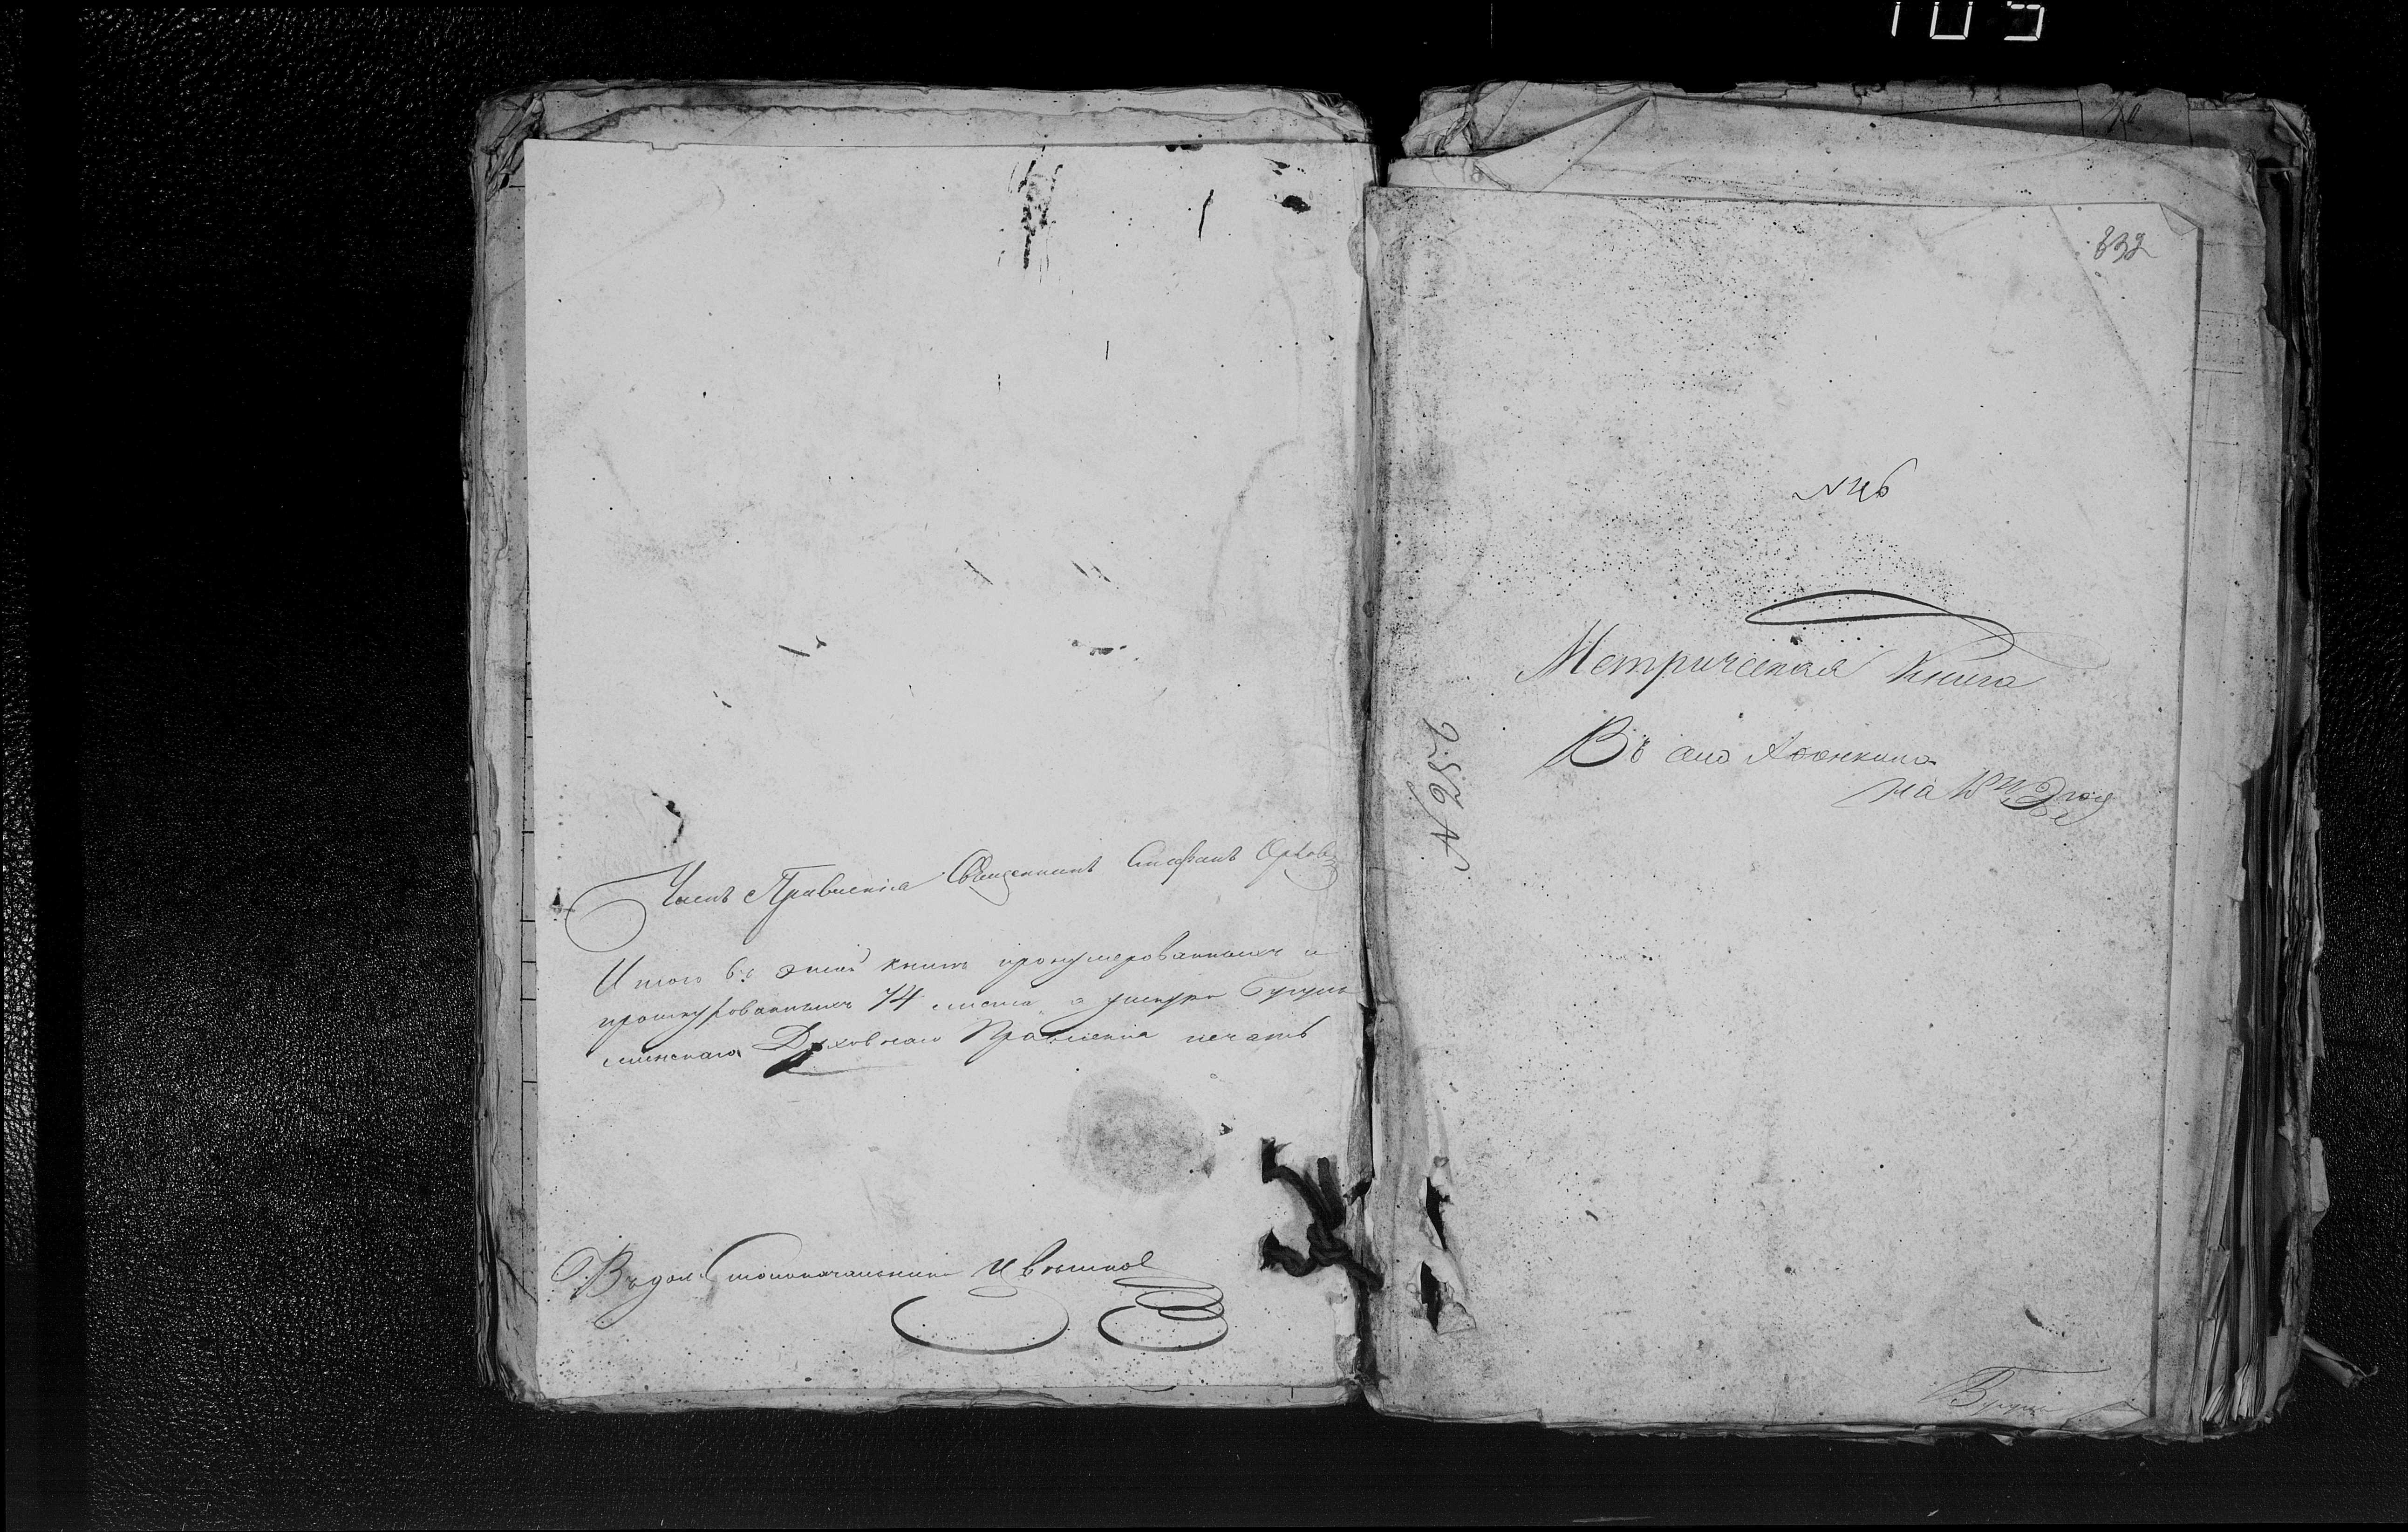 Членъ Правленія Священникъ Стефанъ Орловъ
Итого въ этой книгѣ пронумерованныхъ и
прошнурованныхъ 14 листа, а у шнура Бугуль
минскаго Духовнаго Правленія печать
Столоначальникъ Цвѣтков
105
832
N 46
Метрическая Книга
Въ село
на годъ
N 256
Бугул